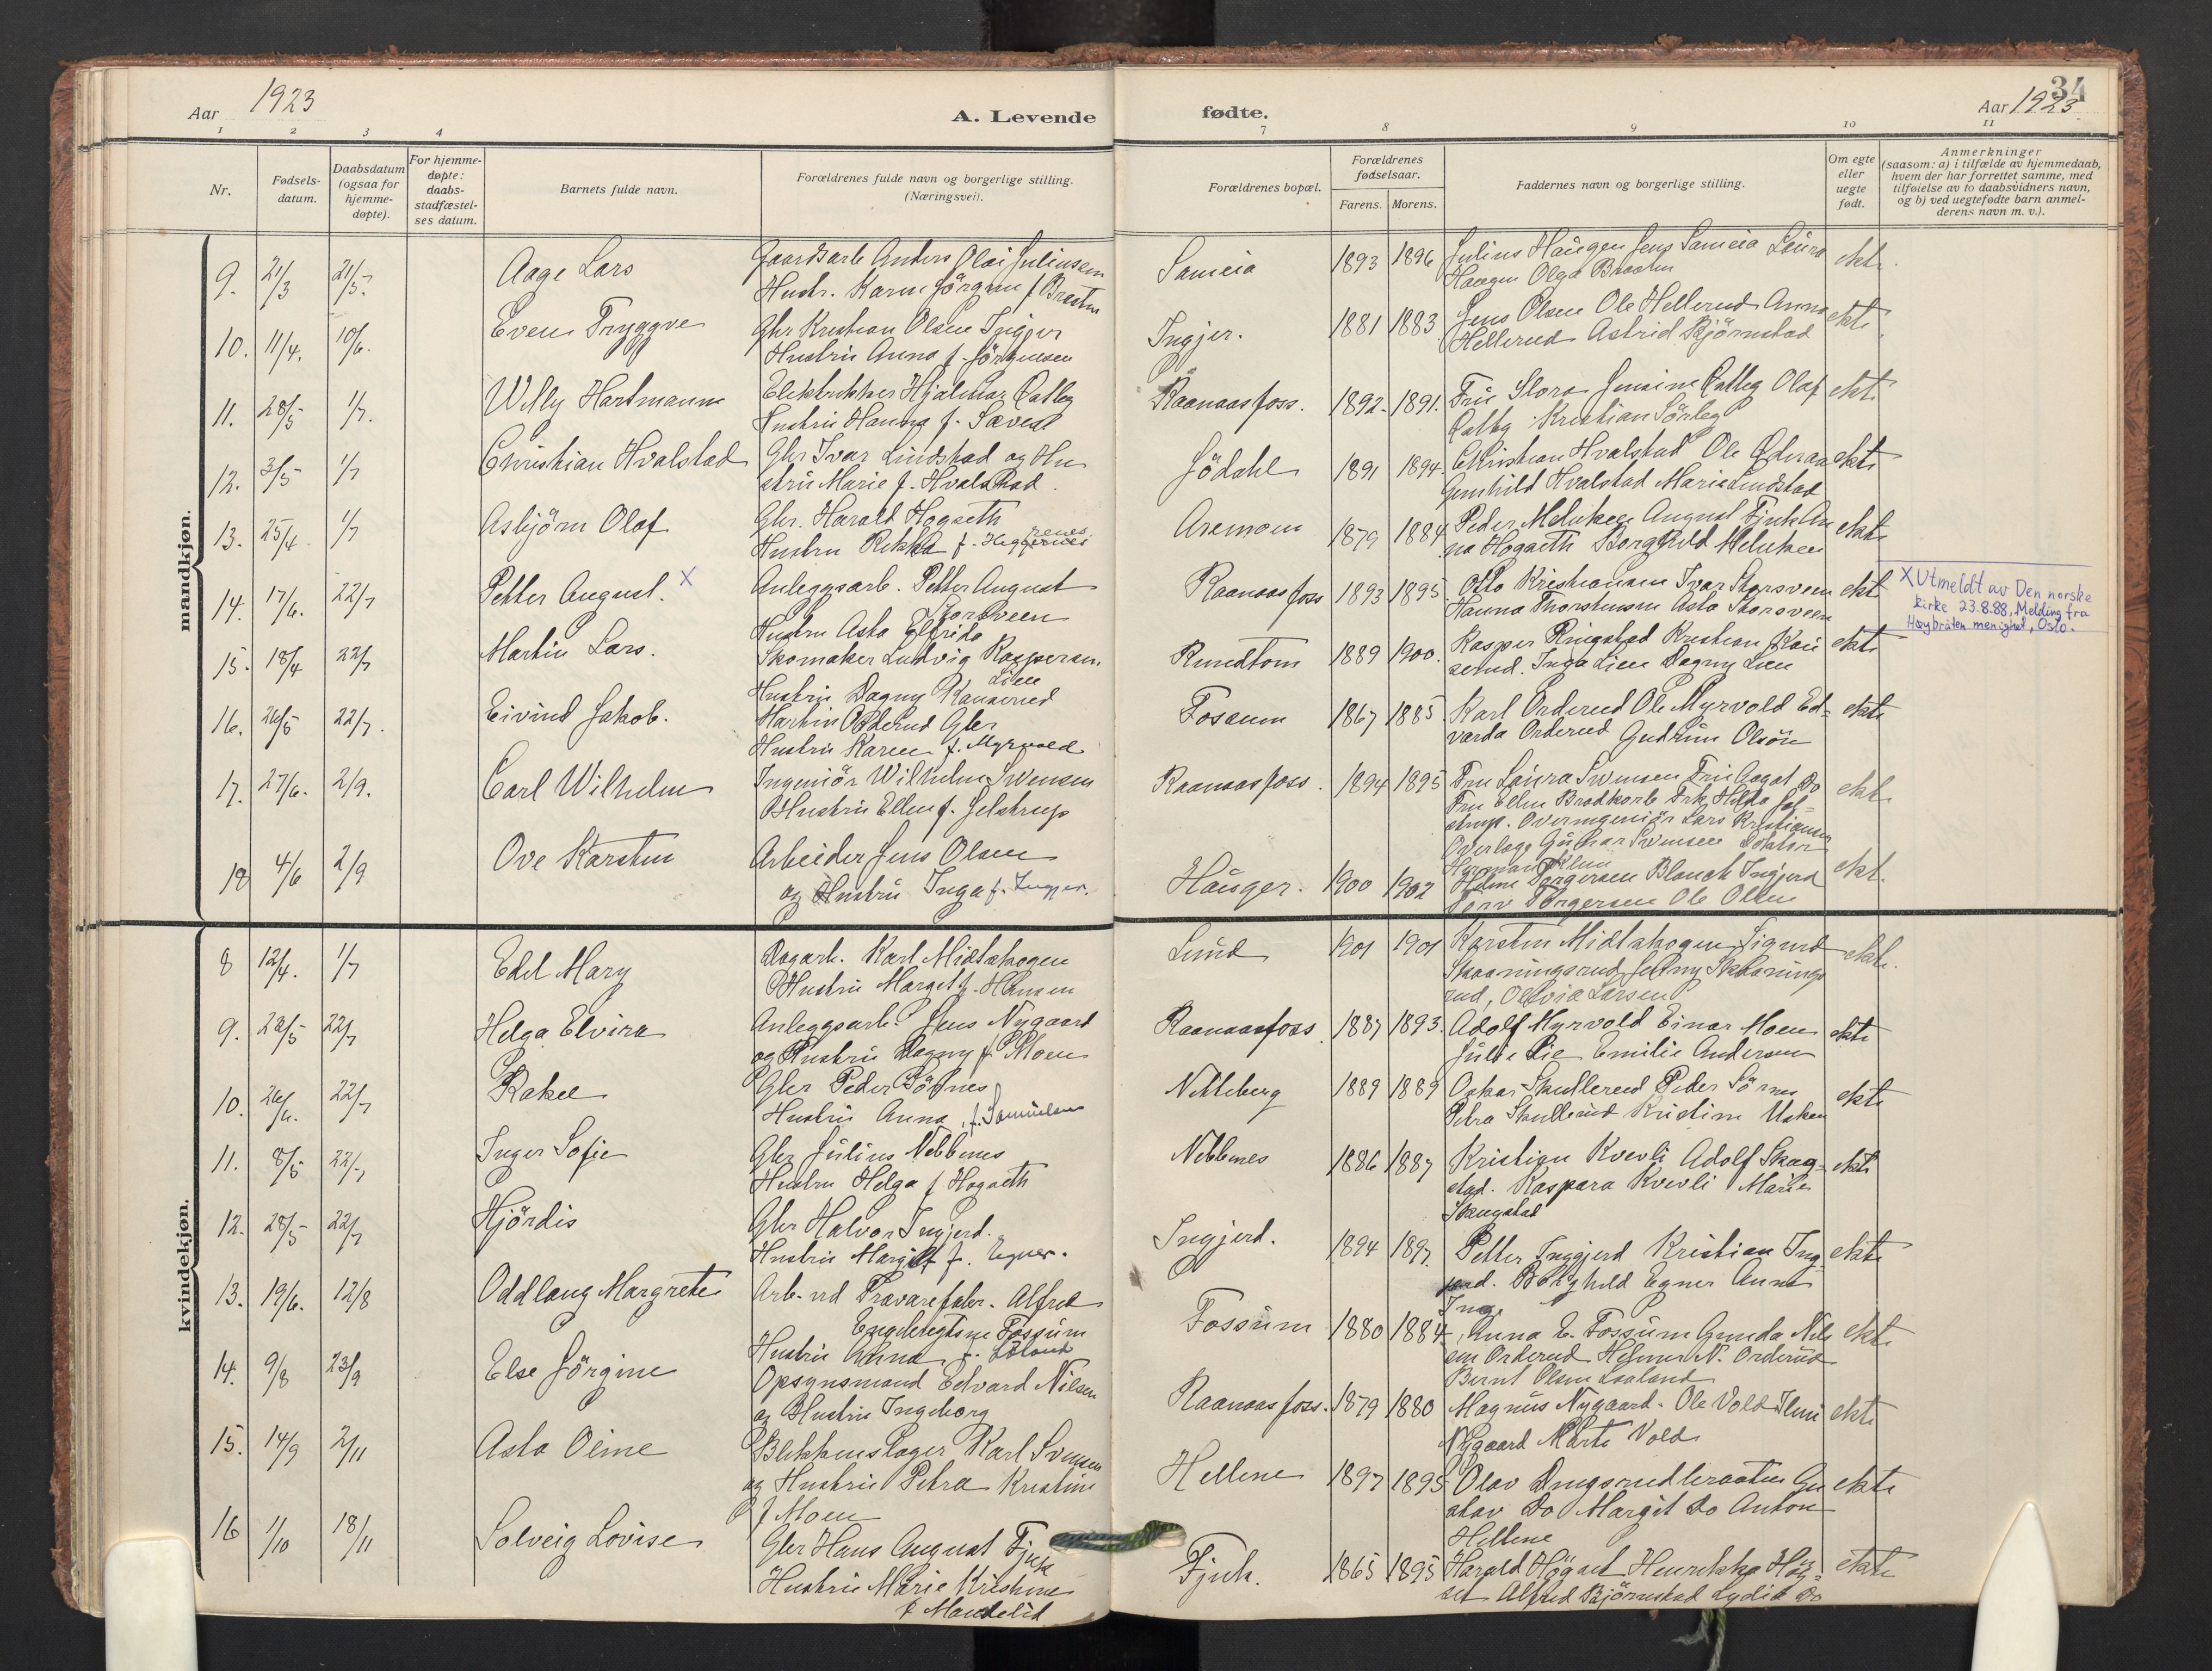 Aar 1923
A. Levende
1 2 3 4
Nr.
Fødsels-
datum.
Daabsdatum
(ogsaa for
hjemme-
døpte).
For hjemme-
døpte:
daabs-
stadfæstel-
ses datum.
Barnets fulde navn.
Forældrenes fulde navn og borgerlige stilling.
(Næringsvei).
mandkjøn.
9. 21/3 21/5. Aage Lars
Gaardsarb Anders Olai Juliusen
Hustr. Karen Jörgine f
10. 11/4. 10/6. Even Tryggve
Gbr Kristian Olsen Ingjer
Hustru Anna f. Jörgensen
11. 28/5 1/7. Willy Hartmann
Elektrikker Hjalmar
Hustru Hanna f.
12. 3/5 1/7 Christian Hvalstad
Gbr Ivar Lindstad og Hu
stru Marie f. Hvalstad.
13. 25/4 1/7 Asbjörn Olaf
Gbr. Harald Hogseth
Hustru Rikka f.
14. 17/6. 22/7 Petter August. X
Anleggsarb. Petter August
Storsveen
Hustru Asta Elfrida
15. 18/4 22/7 Martin Lars.
Skomaker Ludvig Kaspersen
Lien
Hustru Dagny Kauserud
16. 26/5 22/7. Eivind Jakob.
Martin Orderud Gbr
Hustru Karen f. Myrvold
17. 27/6. 2/9. Carl Wilhelm
Ingeniör Wilhelm Svensen
Hustru Ellen f. Jelstrup
18 4/6 2/9 Ove Karsten
Arbeider Jens Olsen
og Hustru Inga f. Ingjer.
kvindekjøn.
8 12/4. 1/7 Edel Mary
Dagarb. Karl Midtskogen
Hustru Margit f. Hansen
9. 22/7 Helga Elvira
Anleggsarb. Jens Nygaard
og Hustru Dagny f. Moen
10. 22/7 Rakel
Gbr Peder Sörnes
Hustru Anna, f. Samuelsen
11. 8/5 22/7 Inger Sofie
Gbr Julius Nebbenes
Hustru Helga f Hogseth
12. 28/5 22/7 Hjördis
Gbr Halvor Ingjerd.
Hustru Margit f. Egner.
13. 19/6. 12/8 Oddlaug Margrete
Arb. ved Trævarefabr. Alfred
Engebregtsen Fossum
Hustru Anna f.
14. 9/8 23/9 Else Jörgine
Opsynsmand Edvard Nilsen
og Hustru Ingeborg
15. 14/9 2/11 Asta Oline
Blikkenslager Karl Svensen
og Hustru Petra Kristine
f Moen
16 1/10 18/11 Solveig Lovise
Gbr Hans August Fjuk
Hustru Marie Kristine
f Mandelid
34
fødte.
Aar 1923
7 8 9 10 11
Forældrenes bopæl.
Forældrenes
fødselsaar.
Farens. Morens.
Faddernes navn og borgerlige stilling.
Om egte
eller
uegte
født.
Anmerkninger
(saasom: a) i tilfælde av hjemmedaab,
hvem der har forrettet samme, med
tilføielse av to daabsvidners navn,
og b) ved uegtefødte barn anmel-
derens navn m. v.).
Sameia 1893 1896 Julius Haugen Jens Sameia Laura ekte.
Haugen Olga
Ingjer. 1881 1883 Jens Olsen Ole Hellerud Anna ekte
Hellerud Astrid Björnstad
Raanaasfoss. 1892. 1891. Fru Olaf ekte
Kristian Sörleg
Jödahl 1891 1894. Christian Hvalstad Ole ekte
Gunhild Hvalstad Marie Lindstad
1879 1884 Peder Melnken August Fjuk An ekte
na Hogseth Borghild Melnken
Raanaasfoss 1893 1895 Otto Kristiansen Ivar Storsveen ekte
Hanna Thorstensen Asta Storsveen
X Utmeldt av Den norske
kirke 23.8.88, Melding fra
Høybråten menighet, Oslo.
Rundtom 1889 1900. Kasper Ringstad Kristian Kau ekte
serud. Inga Lien Dagny Lien
Fossum 1867 1885 Karl Orderud Ole Myrvold Ed= ekte
varda Orderud Gudrun Olsön
Raanaasfoss. 1894 1895 Fru Laura Svensen Fru Aagot Do ekte
Fru Ellen Brodkorb Frk Hilda Jel=
strup. Overingeniör Lars Kristiansen
Overlege Gunnar Svensen Doktor
Hauger. 1900 1902 Torgersen Blanch Ingjerd ekte.
Torgersen Ole Olsen
Lund 1901 1901 Karsten Midtskogen Sigurd ekte.
Skaaningsrud Jenny Skaanings
rud, Olivia Larsen
Raanaasfoss 1887 1893. Adolf Myrvold Einar Moen ekte
Julie Lie Emilie Andersen
Nitteberg 1889 1889 Oskar Skullerud Peder Sörnes ekte
Petra Skullerud Kristine
Nebbenes 1886 1887 Kristian Kvevli Adolf Skaug= ekte
stad. Kaspara Kvevli Marie
Skaugstad
Ingjerd. 1894 1897. Petter Ingjerd Kristian Ing ekte
jerd. Borghild Egner Anna
Inge
Fossum 1880 1884 Anna E. Fossum Gunda Nil ekte
sen Orderud Helmer N. Orderud
Bernt Olsen Laaland
Raanaasfoss. 1879 1880 Magnus Nygaard. Ole Vold ekte
Nygaard Marte Vold
Hellene 1897 1895 Olav Dingsrudbraaten Gu ekte
stav Do Margit Do Anton
Hellene
Fjuk. 1865 1895 Harald Högset Henrikka Hög= ekte
set Alfred Björnstad Lydia Do